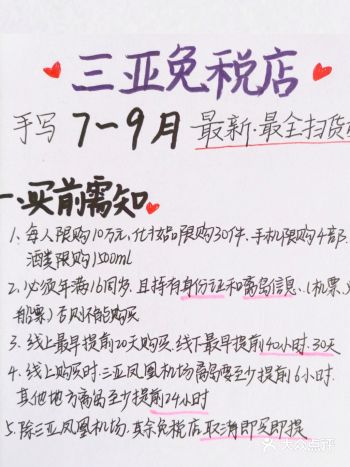 三亚免税店
手写 7~9月 最新·最全扫货
一.买前需知
1、每人限购10万元,化妆品限购30件.手机限购4部.
酒类限购1500ml
2、必须年满16周岁.且持有身份证和离岛信息、(机票、
船票)否则不能购买
3、线上最早提前20天购买.线下最早提前40小时.30天
4、线上购买时.三亚凤凰机场离岛要至少提前6小时.
其他地方离岛至少提前24小时
5.除三亚凤凰机场.其余免税店取消即买即提
大众点评